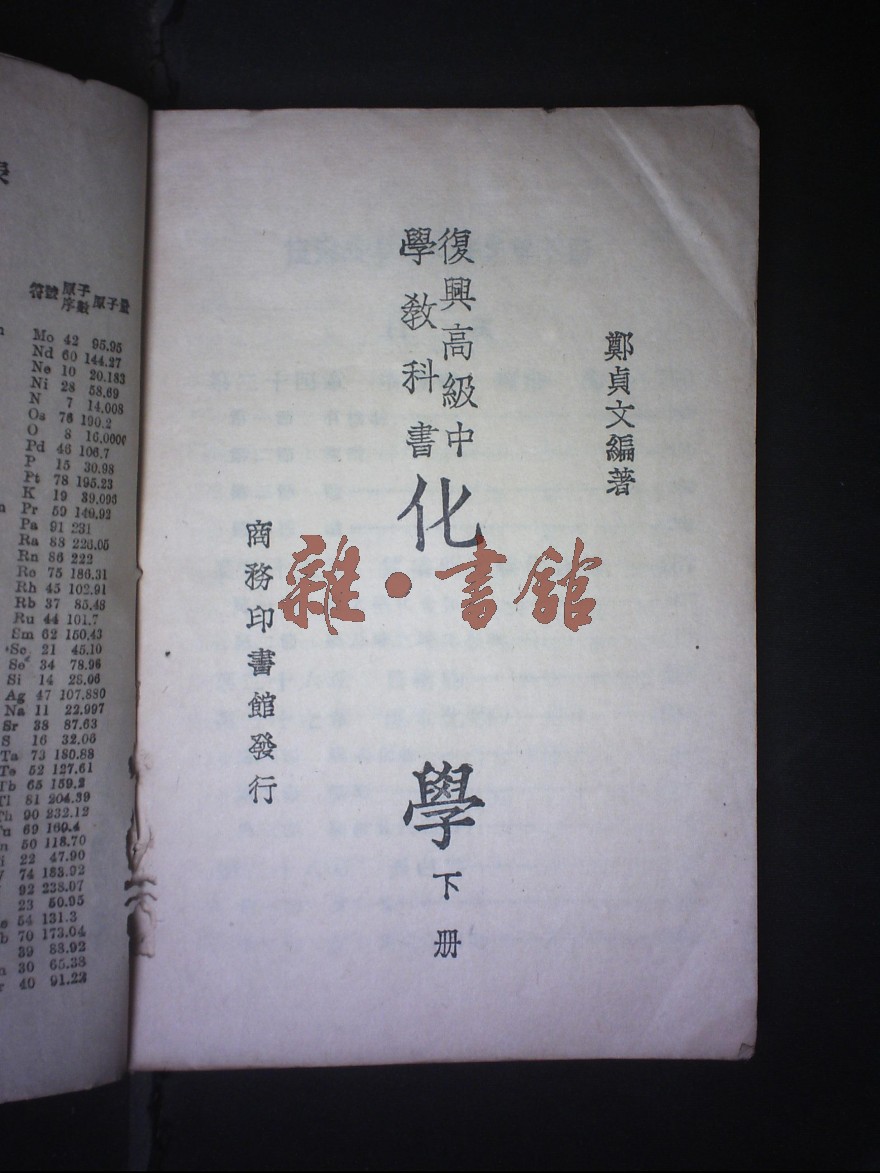 鄭貞文編著
復興高級中
學教科書
化學下册
商務印書館發行
雜·書館
符號 原子序數 原子量
Mo 42 95.95
Nd 60 144.27
Ne 10 20.183
Ni 28 58.69
N 7 14.008
Os 76 190.2
O 8 16.0000
Pd 46 106.7
P 15 30.98
Pt 78 195.23
K 19 39.096
Pr 59 140.92
Pa 91 231
Ra 88 226.05
Rn 86 222
Re 75 186.31
Rh 45 102.91
Rb 37 85.48
Ru 44 101.7
Sm 62 150.43
Sc 21 45.10
Se 34 78.96
Si 14 28.06
Ag 47 107.880
Na 11 22.997
Sr 38 87.63
S 16 32.06
Ta 73 180.88
Te 52 127.61
Tb 65 159.2
Tl 81 204.39
Th 90 232.12
69 169.4
50 118.70
22 47.90
74 183.92
92 238.07
23 50.95
54 131.3
70 173.04
39 88.92
30 65.38
40 91.22